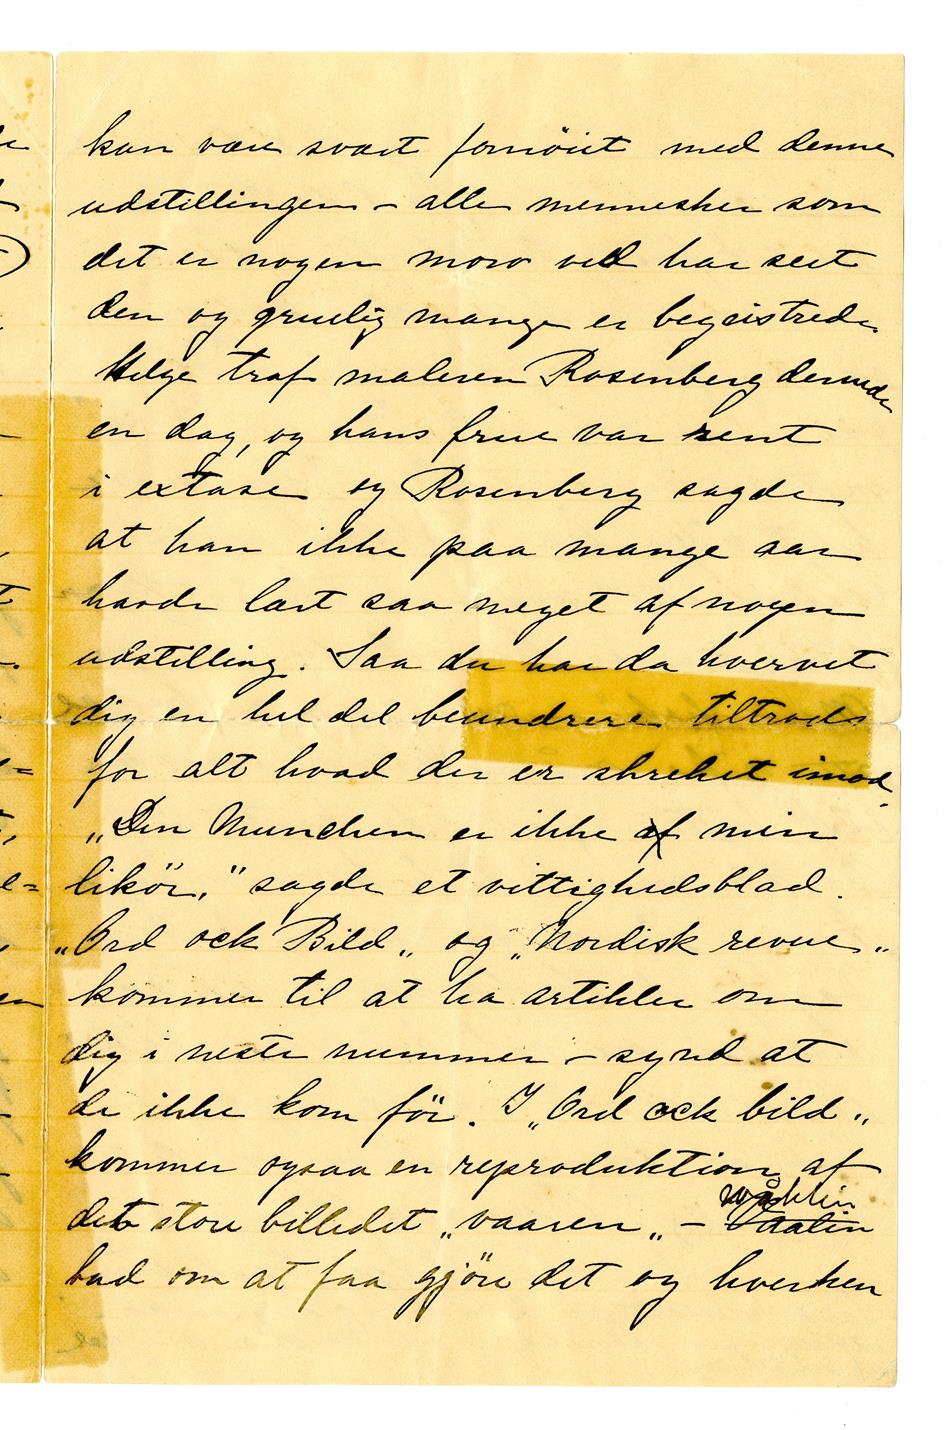 kan være svært fornöiet med denne
udstillingen – alle mennesker som
det er nogen moro ved har seet
den og gruelig mange er begeistrede.
Helge traf maleren Rosenberg dernede
en dag, og hans frue var rent
i extase og Rosenberg sagde
at han ikke paa mange aar
havde lært saa meget af nogen
udstilling. Saa du har da hvervet
dig en hel del beundrere tiltrods
for alt hvad der er skreket imod.
„Den Munchen er ikke af min
likör," sagde et vittighedsblad.
„Ord ock Bild„ og „Nordisk revue„
kommer til at ha artikler om
dig i neste nummer – synd at
de ikke kom för. I „Ord ock bild„
kommer ogsaa en reproduktion af
det store billedet „vaaren„ – Vaalin Wåhlin
bad om at faa gjöre det og hverken